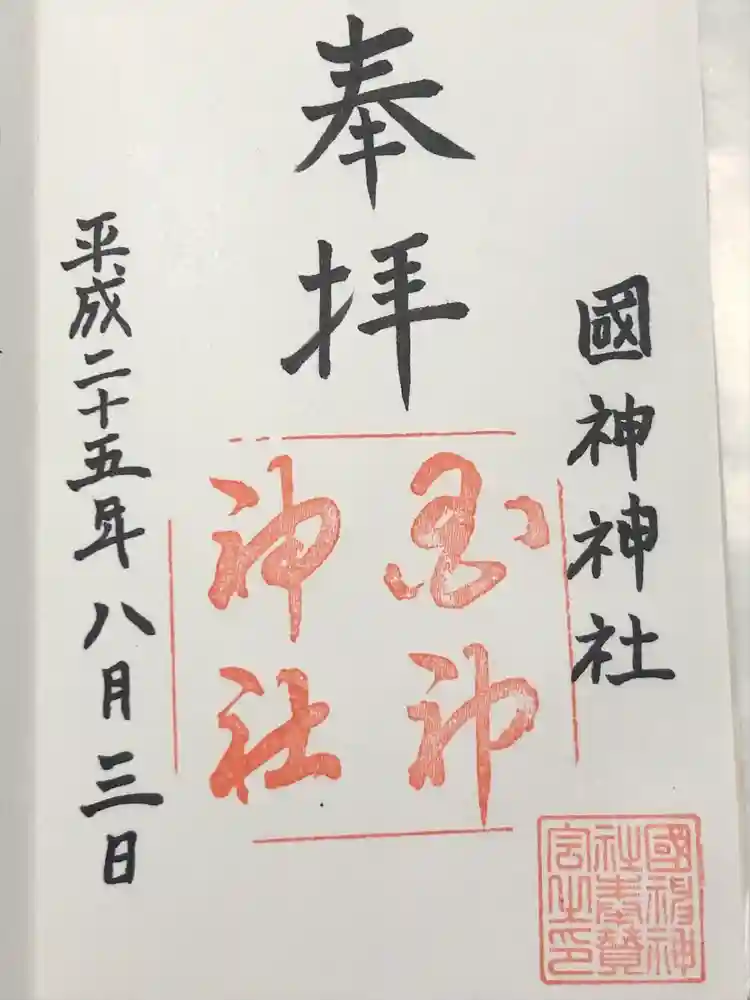 國神神社
奉拝
國神
神社
平成二十五年八月三日
國神神
社奉賛
会之印